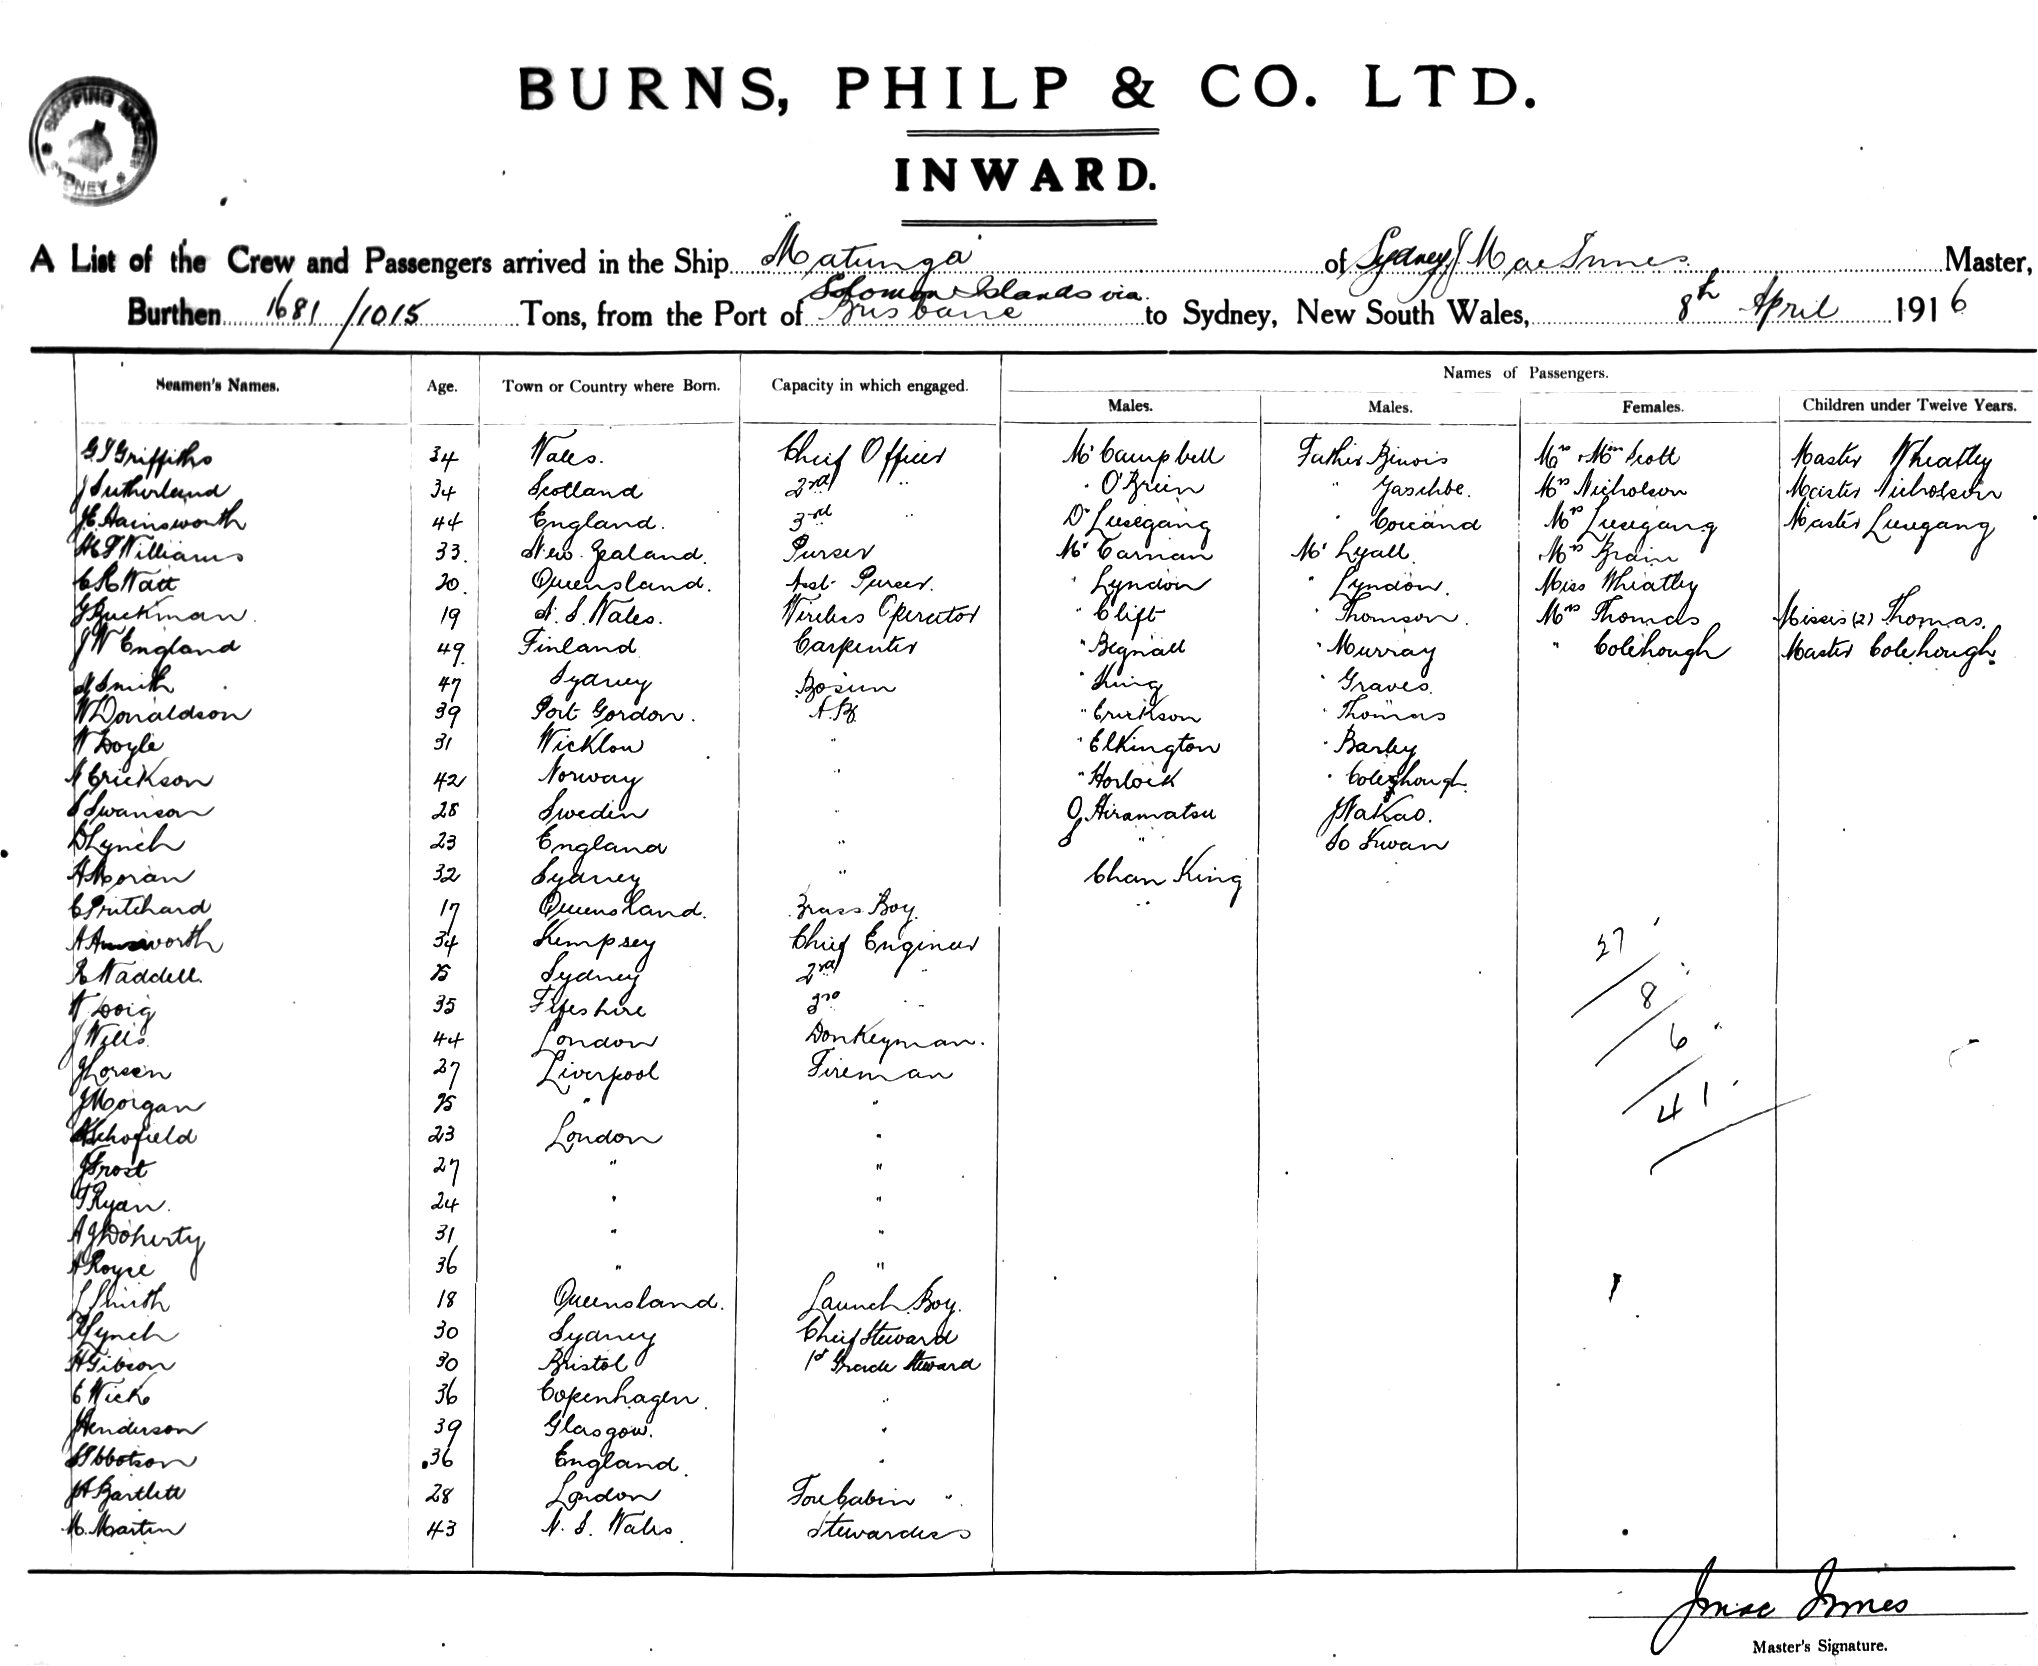 BURNS, PHILP & CO. LTD.
SHIPPING MASTER SYDNEY
INWARD.
A List of the Crew and Passengers arrived in the Ship Matunga of Sydney J MacInnes Master,
Solomon Islands via
Burthen 1681/1015 Tons, from the Port of Brisbane to Sydney, New South Wales, 8th April 1916
Names of Passengers.
Seamen's Names. Age. Town or Country where Born. Capacity in which engaged. Males. Males. Females. Children under Twelve Years.
Griffiths 34 Wales. Chief Officer Mr Campbell Father Binois Mrs Scott Master Wheatley
J Sutherland 34 Scotland 2nd " " O'Brien " Mrs Nicholson Master Nicholson
Hainsworth 44 England. 3rd " Dr Liesegang " Coicand Mrs Liesegang Master Liesegang
Williams 33. New Zealand. Purser Mr Carnan Mr Lyall Mrs Brain
Watt 20. Queensland. Asst. Purser. " Lyndon " Lyndon. Miss Wheatley
G Buckman 19 N. S. Wales. Wireless Operator " Clift " Thomson. Mrs Thomas Misses (2) Thomas.
J W England 49. Finland Carpenter " Begnall " Murray " Colehough Master Colehough.
Smith 47 Sydney Bosun " King " Graves.
W Donaldson 39 Port Gordon. A.B. " Erickson " Thomas
W Doyle 31 Wicklow " " Elkington " Barley
Erickson 42 Norway " " Horlock " Colehough.
S Swanson 28 Sweden " O Hiramatsu J Nakao.
D Lynch 23 England " S " So Kwan
A Moran 32 Sydney " Chan King
C Pritchard 17 Queensland. Brass Boy.
A Ainsworth 34 Kempsey Chief Engineer
R Waddell. 25 Sydney 2nd "
W Doig 35 Fifeshire 3rd "
J Wills. 44 London Donkeyman.
J Lorsen 27 Liverpool Fireman
J Morgan 25 " "
Schofield 23 London "
J Frost 27 " "
T Ryan. 24 " "
A J Doherty 31 " "
A Royse 36 " "
L Smith 18 Queensland. Launch Boy.
Lynch 30 Sydney Chief Steward
H Gibson 30 Bristol 1st Grade Steward
E Wick 36 Copenhagen. "
J Henderson 39 Glasgow. "
Ibbotson 36 England. "
J A Bartlett 28 London Fore Cabin "
M. Martin 43 N. S. Wales. Stewardess
27
8
6
41
J Mac Innes
Master's Signature.